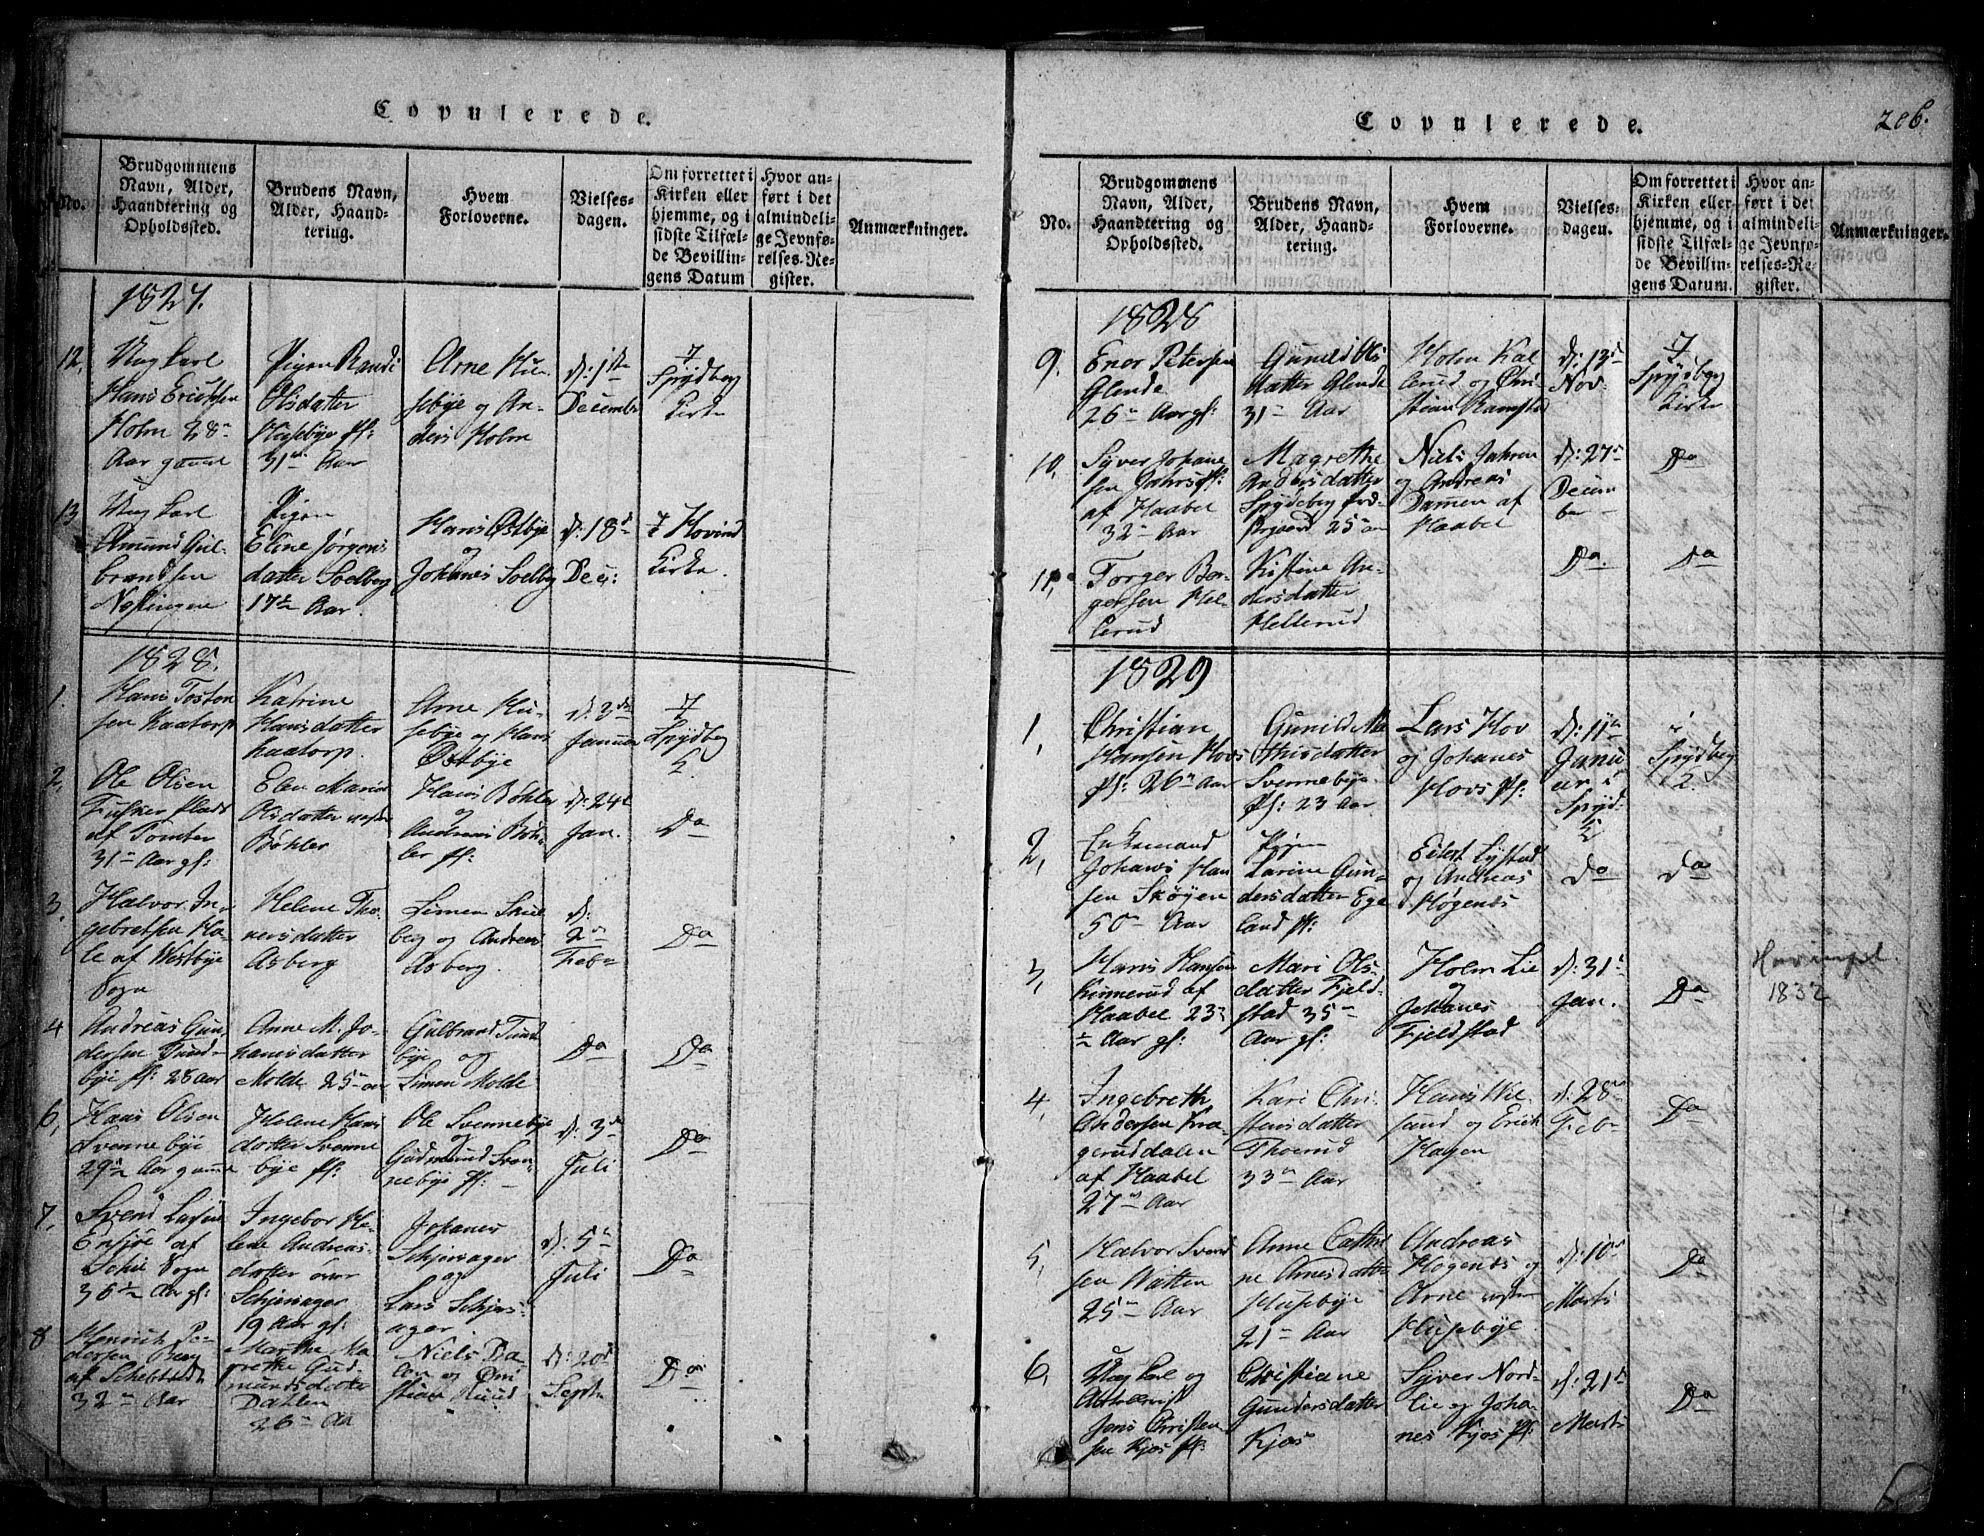 Copulerede.
No.
Brudgommens
Navn, Alder,
Haandtering og
Opholdssted.
Brudens Navn,
Alder, Haand-
tering.
Hvem
Forloverne.
Vielses-
dagen.
Om forrettet i
Kirken eller
hjemme, og i
sidste Tilfæl-
de Bevillin-
gens Datum
Hvor an-
ført i det
almindeli-
ge Jevnfø-
relses-Re-
gister.
Anmærkninger.
1827.
12.
Ung karl
Hans Ericksen
Holm 28
Aar gamel
Pigen Randi
Olsdatter
Husebye pl:
31 Aar
Arne Hu-
sebye og An-
ders Holm
d: 1ste
Decembr
I
Spydberg
Kirke
13
Ung karl
Amund Gul-
brandsen
Næsingen
Pigen
Eline Jørgens
datter Soelberg
17 1/2 Aar.
Hans Østbye
og
Johanes Soelberg
d: 18d
Decr:
I Hovind
Kirke.
1828.
1.
Hans Tosten
sen Kaatorp
Katrine
Hansdatter
Kaatorp.
Arne Hu-
sebye og Hans
Østbye
d: 3die
Januar
I
Spydberg
K.
2,
Ole Olsen
plads
af Tomter
31 Aar gl:
Elen Maria
Olsdatter
Bøhler
Hans Bøhler
og
Andreas Bøh-
ler pl:
d: 24d
Jan.
Do
3.
Halvor In-
gebretsen Ha-
le af Westbye
Sogn
Helene Tho-
nersdatter
Asberg
Simen Skul
berg og Andreas
Asberg.
d:
2
Feb
Do
4
Andreas Gun
dersen Tund-
bye pl: 28 Aar
Anne M. Jo-
hanesdatter
Molde 25 aar
Gulbrand Tund
bye og
Simen Molde
Do
Do
6,
Hans Olsen
Svennebye
29 1/2 Aar gamel
Helene Hans
datter Svenne
bye pl:
Ole Svennebye
og
Gudmund Sven-
nebye pl:
d: 3d
Juli
Do
7.
Svend Larsen
Ensjøe af
Schie Sogn
36 1/2 Aar gl:
Ingebor He-
lene Andreas-
datter
Schjersager
19 Aar gl:
Johanes
Schjersager
og
Lars Schjers-
ager
d: 5
Juli
Do
8
Henrich Pe-
dersen Berg
af Schebtvedt
32 Aar
Marthe Ma
grethe Gud-
mundsdatter
Dahlen
26 Aar
Niels Da-
len og Chri
stian Ruud
d: 20d
Sept.
Do
Copulerede.
206.
No.
Brudgommens
Navn, Alder,
Haandtering og
Opholdssted.
Brudens Navn,
Alder, Haand-
tering.
Hvem
Forloverne.
Vielses-
dagen.
Om forrettet i
Kirken eller
hjemme, og i
sidste Tilfæl-
de Bevillin-
gens Datum.
Hvor an-
ført i det
almindeli-
ge Jevnfø-
relses-Re-
gister.
Anmærkninger.
1828
9.
Enor Petersen
Glende
26 Aar gl:
Gunild Ols
datter Glende
31 Aar
Holm Kal
lerud og Chri-
stian Ramstad
d: 13d
Nov.
I
Spydberg
Kirke
10,
Syver Johane
sen Jahren pl:
af Haabel
32 Aar
Magrethe
Andersdatter
Spydeberg Præ-
stegaard 25
Niels Jahren
og Andreas
Dammen af
Haabel
d: 27
Decem
ber
Do
11,
Torger Bor-
gersen Hel-
lerud
Kistine An-
dersdatter
Hellerud
Do.
Do
1829
1,
Christian
Hansen Hovs
pl: 26 Aar
Gunild Ma
thisdatter
Svennebye
pl: 23 Aar
Lars Hov
og Johanes
Hovs pl:
d: 11te
Janu
ar i
Spyd:
K
i
Spydberg
K.
2,
Enkemand
Johanes Han
sen Skøyen
50 Aar
Pigen
Karine Gun-
dersdatter Ege
land pl:
Eilert Lystad
og Andreas
Høgenæs
Do
Do
3,
Hans Hansen
Kinnerud af
Haabel 23
1/2 Aar gl:
Mari Ols
datter Fjeld-
stad 35
Aar gl:
Holm Lie
og
Johanes
Fjeldstad
d: 31
Jan.
Do
1832
4,
Ingebreth
Andersen Kra-
gerud dalen
af Haabel
27 Aar
Kari Chri-
stensdatter
Thoerud
33 Aar
Hans Wil-
sand og Erick
Hagen
d: 28
Feb
Do
5,
Halvor Svend
sen Watten
25 Aar
Anne Cathri
ne Arnesdatter
Husebye
21 Aar
Andreas
Høgenæs og
Arne
Husebye
d: 10
Marts
Do
6,
Ung karl og
Jens Christen
sen Kjos pl:
Christiane
Gundersdatter
Kjos
Syver Nord-
lie og Joha-
nes Kjos pl:
d: 21d
Marts
Do